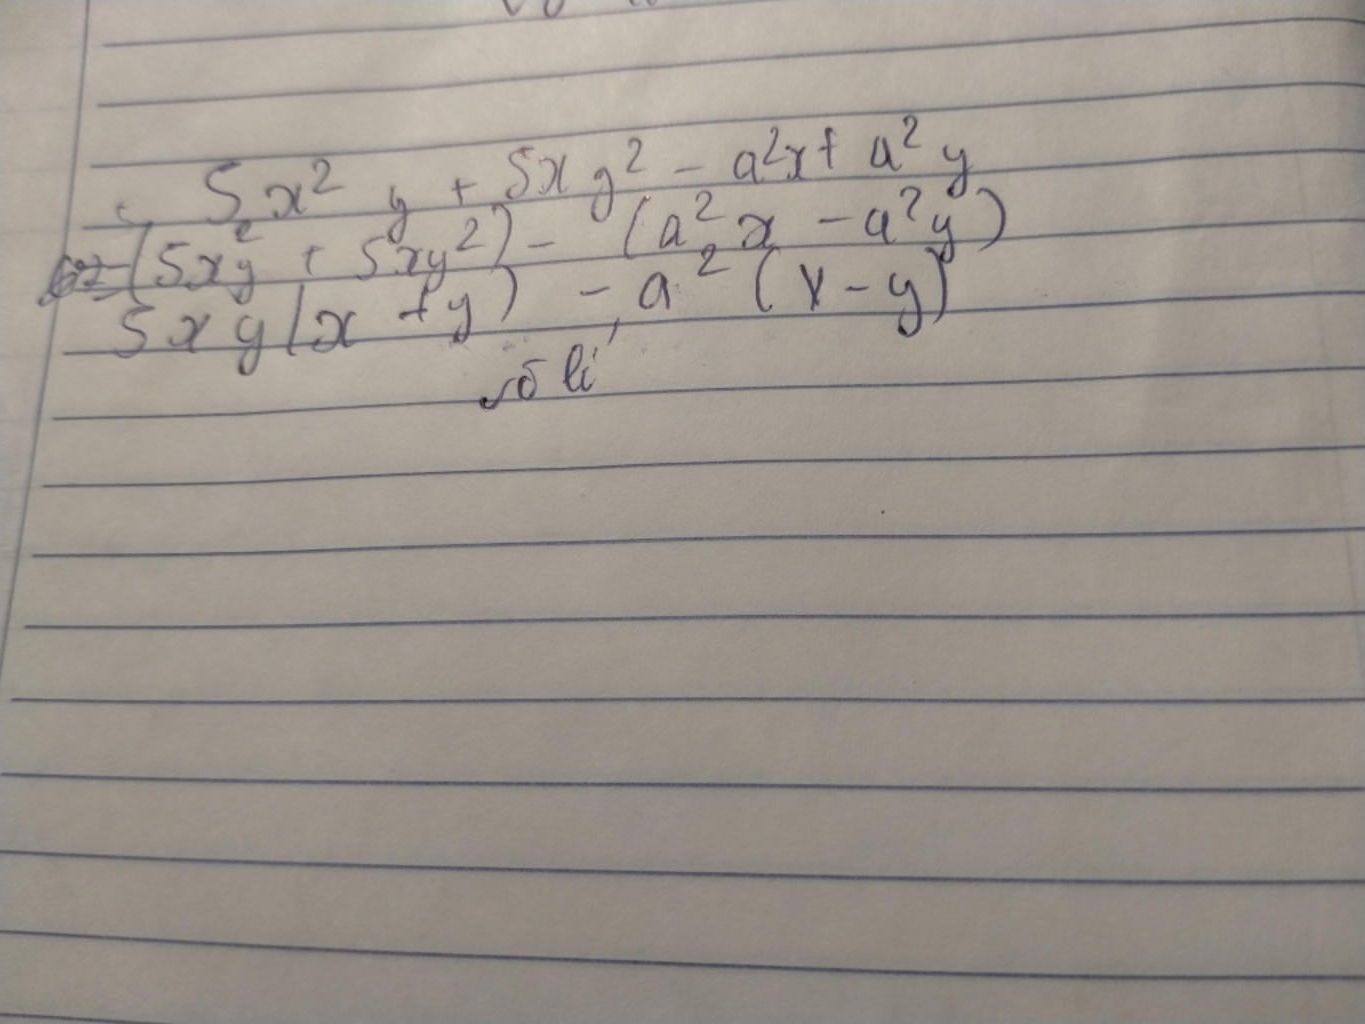 5x² y + 5xy² - a²x + a²y
(5x²y + 5xy²) - (a²x - a²y)
5xy(x + y) - a²(x - y)
vô lí